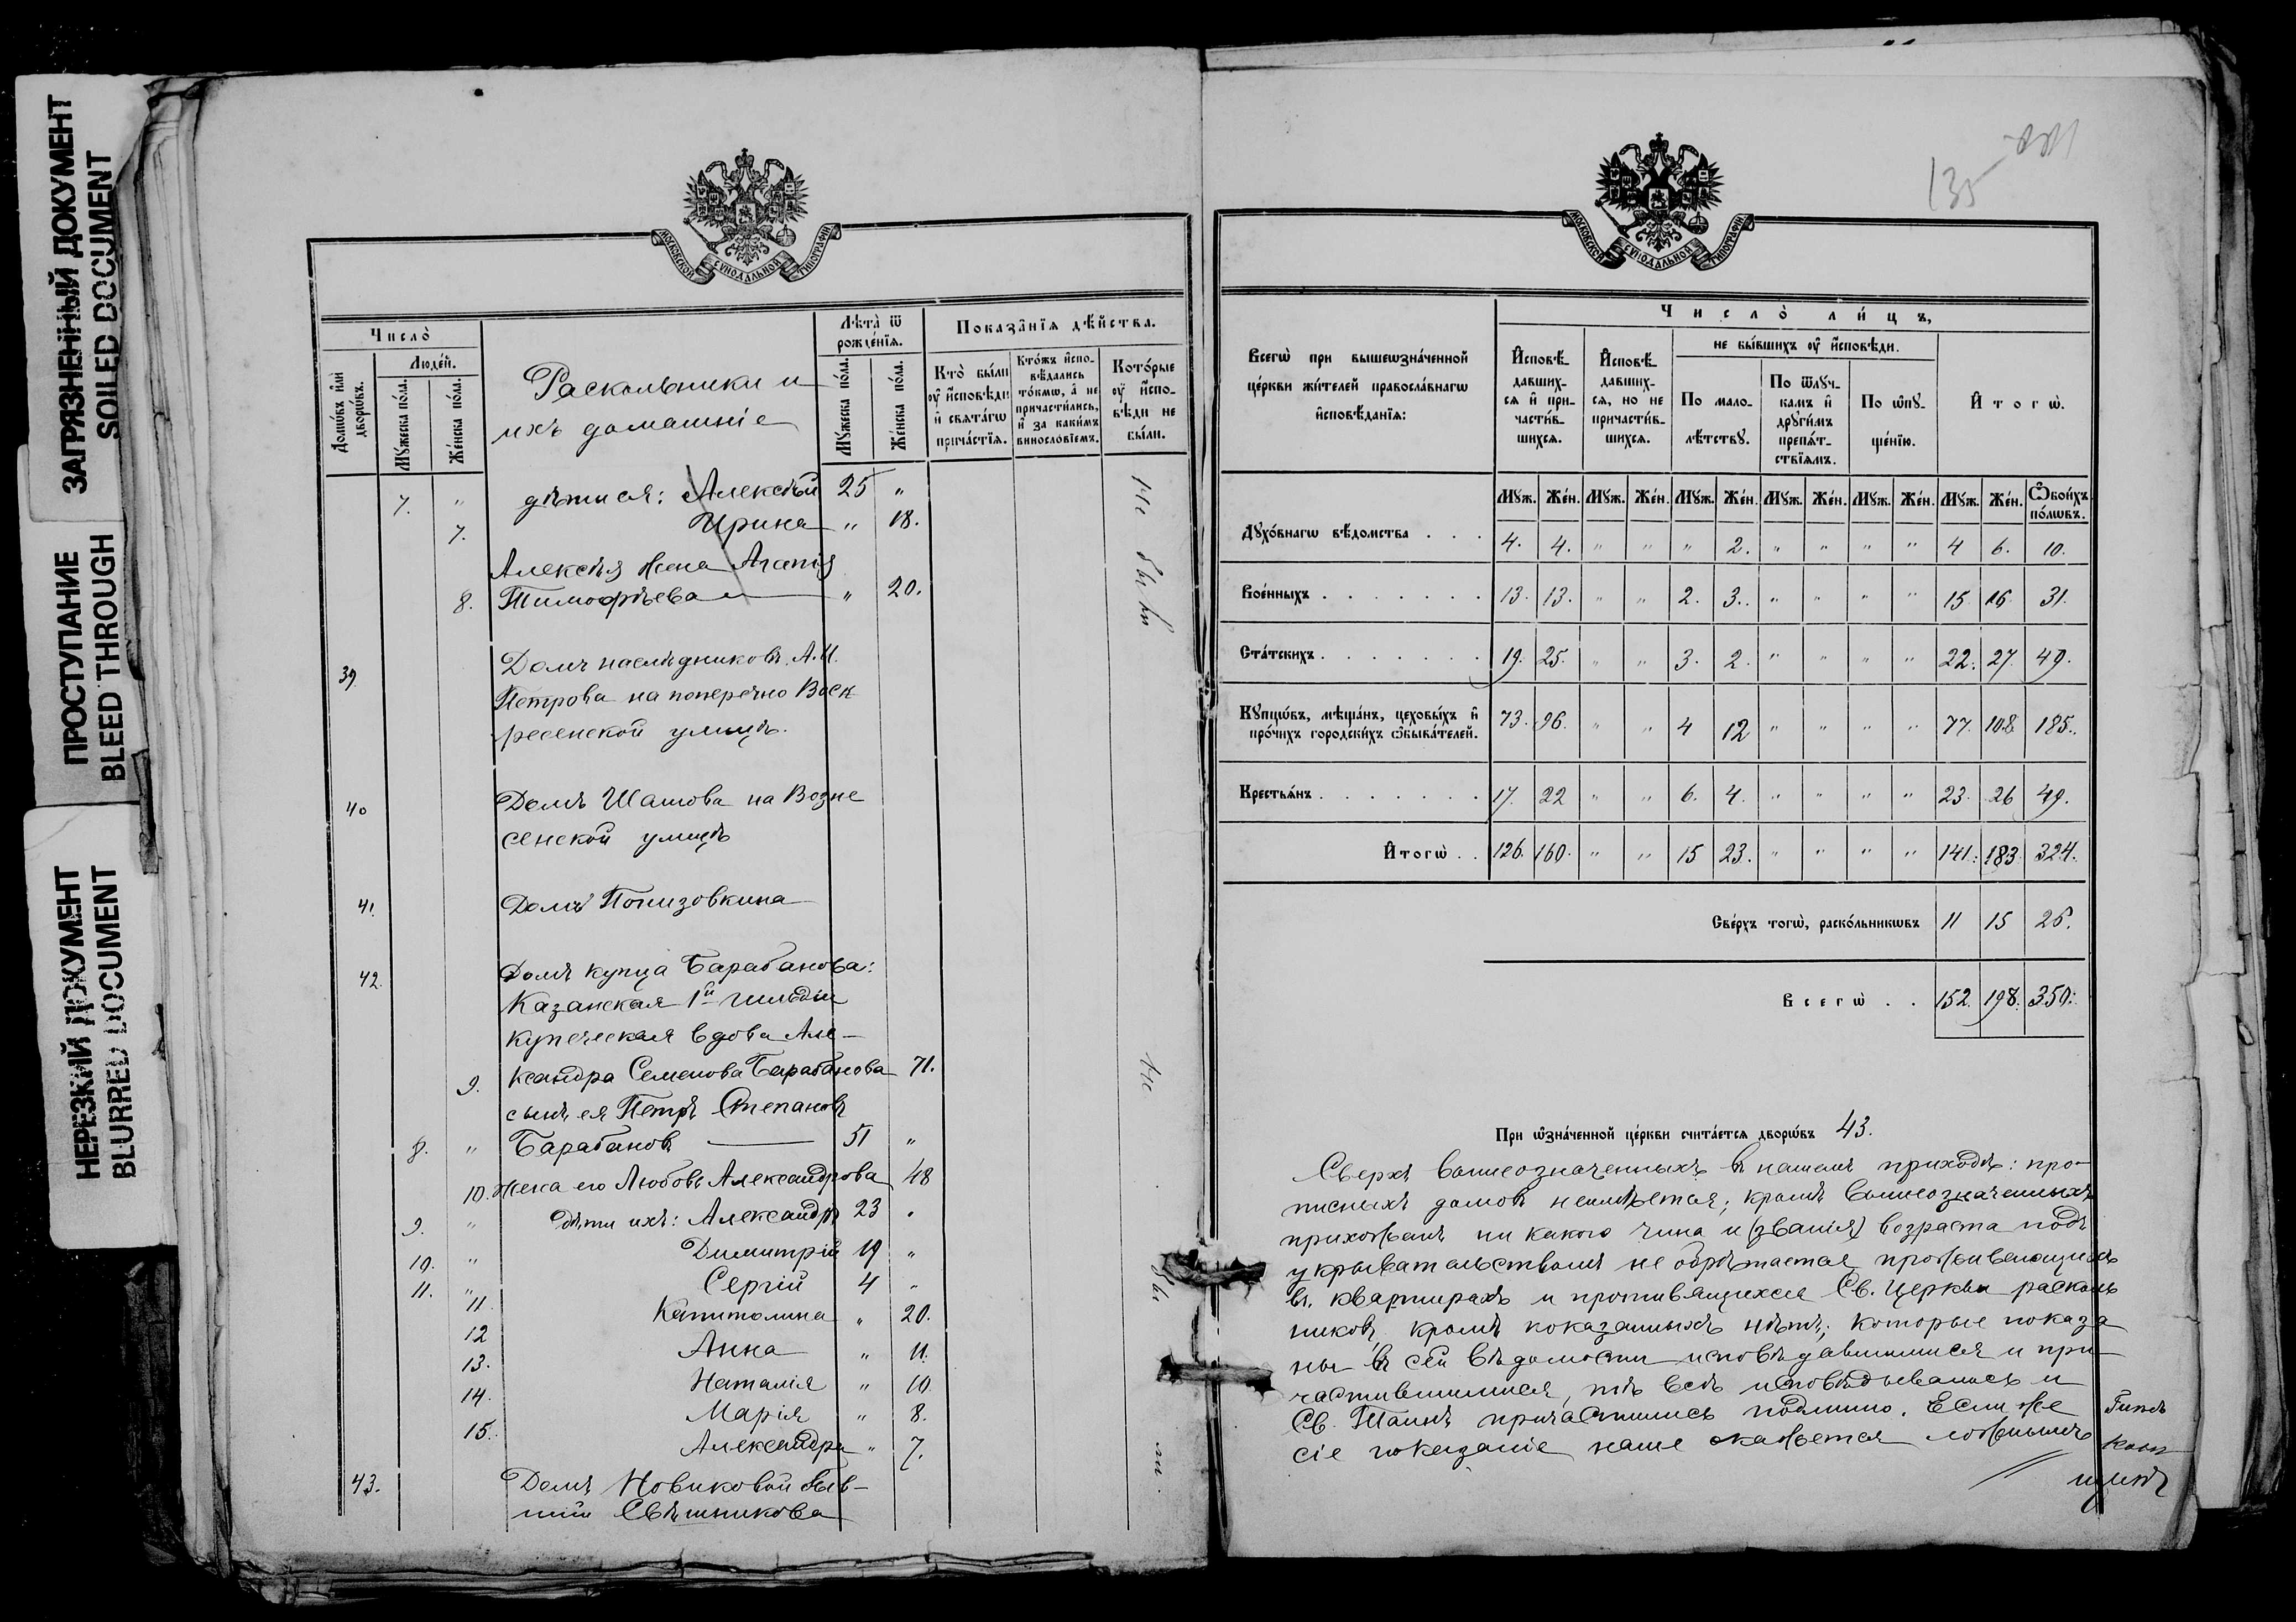 ЗАГРЯЗНЕННЫЙ ДОКУМЕНТ
SOILED DOCUMENT
ПРОСТУПАНИЕ
BLEED THROUGH
НЕРЕЗКИЙ ДОКУМЕНТ
BLURRED DOCUMENT
МОСКОВСКОЙ СѴНОДАЛЬНОЙ ТИПОГРАФІИ
Число̀
Домѡ́въ и҆лѝ дворѡ́въ.
Люде́й.
Мꙋ́жеска по́ла.
Же́нска по́ла.
Раскольники и
ихъ домашніе
Лѣта̀ ѿ рожде́нїѧ.
Мꙋ́жеска по́ла.
Же́нска по́ла.
Показа̑нїѧ дѣ́йства.
Кто̀ бы́ли ᲂу҆ и҆сповѣди и҆ свѧта́гѡ прича́стїѧ.
Кто́жъ и҆сповѣ́дались то́кмѡ, а҆ не причасти́лись, и҆ за каки́мъ винословїемъ.
Кото́рые ᲂу҆ и҆сповѣди не бы́ли.
7. " дѣти ея: Алексѣй 25 "
7. Ирина " 18.
Алексѣя жена Агапія
8. Тимофѣева " 20.
Не были
39 Домъ наслѣдниковъ А.И.
Петрова на поперечно Воск
ресенской улицѣ.
40 Домъ Шашова на Возне
сенской улицѣ
41. Домъ Понизовкина
42. Домъ купца Барабанова:
Казанская 1й гильдіи
купеческая вдова Але-
9. ксандра Семенова Барабанова 71.
сынъ ея Петръ Степановъ
8. " Барабановъ 51 "
10. Жена его Любовь Александрова 48
9. " дѣти ихъ: Александръ 23 "
10. " Димитрій 19 "
11. " Сергій 4 "
11. Капитолина " 20.
12 Анна " 11.
13. Наталія " 10.
14. Марія " 8.
15. Александра " 7.
Не были.
43. Домъ Новиковой быв-
шій Свѣшникова
135
МОСКОВСКОЙ СѴНОДАЛЬНОЙ ТИПОГРАФІИ
Всегѡ̀ при вышеѡзна́ченной це́ркви жи́телей правосла́внагѡ и҆сповѣ́данїѧ:
Число̀ ли́цъ,
И҆сповѣ́давшихсѧ и҆ причасти́вшихсѧ.
И҆сповѣ́давшихсѧ, но не причасти́вшихсѧ.
не бы́вшихъ ᲂу҆ и҆сповѣди.
По малолѣ́тствꙋ.
По ѿлꙋ́чкамъ и҆ дрꙋги̑мъ препѧ́тствїѧмъ.
По ѡ҆пꙋще́нїю.
И҆того̀.
Мꙋж. Же́н. Мꙋж. Же́н. Мꙋж. Же́н. Мꙋж. Же́н. Мꙋж. Же́н. Мꙋж. Же́н. Ѻ҆бои́хъ по́лѡвъ.
Дꙋхо́внагѡ вѣ́домства . . . 4. 4. " " " 2. " " " " 4 6. 10.
Вое́нныхъ . . . . . . . 13. 13. " " 2. 3. " " " " 15. 16. 31.
Ста́тскихъ . . . . . . . 19. 25. " " 3. 2. " " " " 22. 27. 49.
Кꙋпцѡ́въ, мѣща́нъ, цеховы́хъ и҆ про́чихъ городски́хъ ѡ҆быва́телей. 73. 96. " " 4 12 " " " " 77. 108 185.
Крестьѧ́нъ . . . . . . . 17. 22 " " 6. 4. " " " " 23. 26 49.
И҆того̀ . . 126. 160. " " 15 23. " " " " 141. 183. 324.
Све́рхъ тогѡ̀, раско́льникѡвъ 11 15 26.
Всегѡ̀ . . 152. 198. 350.
При ѡ҆зна́ченной це́ркви счита́етсѧ дворѡ́въ 43.
Сверхъ вышеозначенныхъ въ нашемъ приходѣ: про-
писныхъ домовъ неимѣется; кромѣ вышеозначенныхъ
прихожанъ ни какого чина и (званія) возраста подъ
укрывательствомъ не обрѣтается, проживающихъ
въ квартирахъ и противящихся Св. Церкви расколь
никовъ, кромѣ показанныхъ нѣтъ; которые показа
ны въ сей вѣдомости исповѣдавшимися и при-
частившимися, тѣ всѣ исповѣдывались и
Св. Таинъ причастились подлинно. Если же
сіе показаніе наше окажется ложнымъ